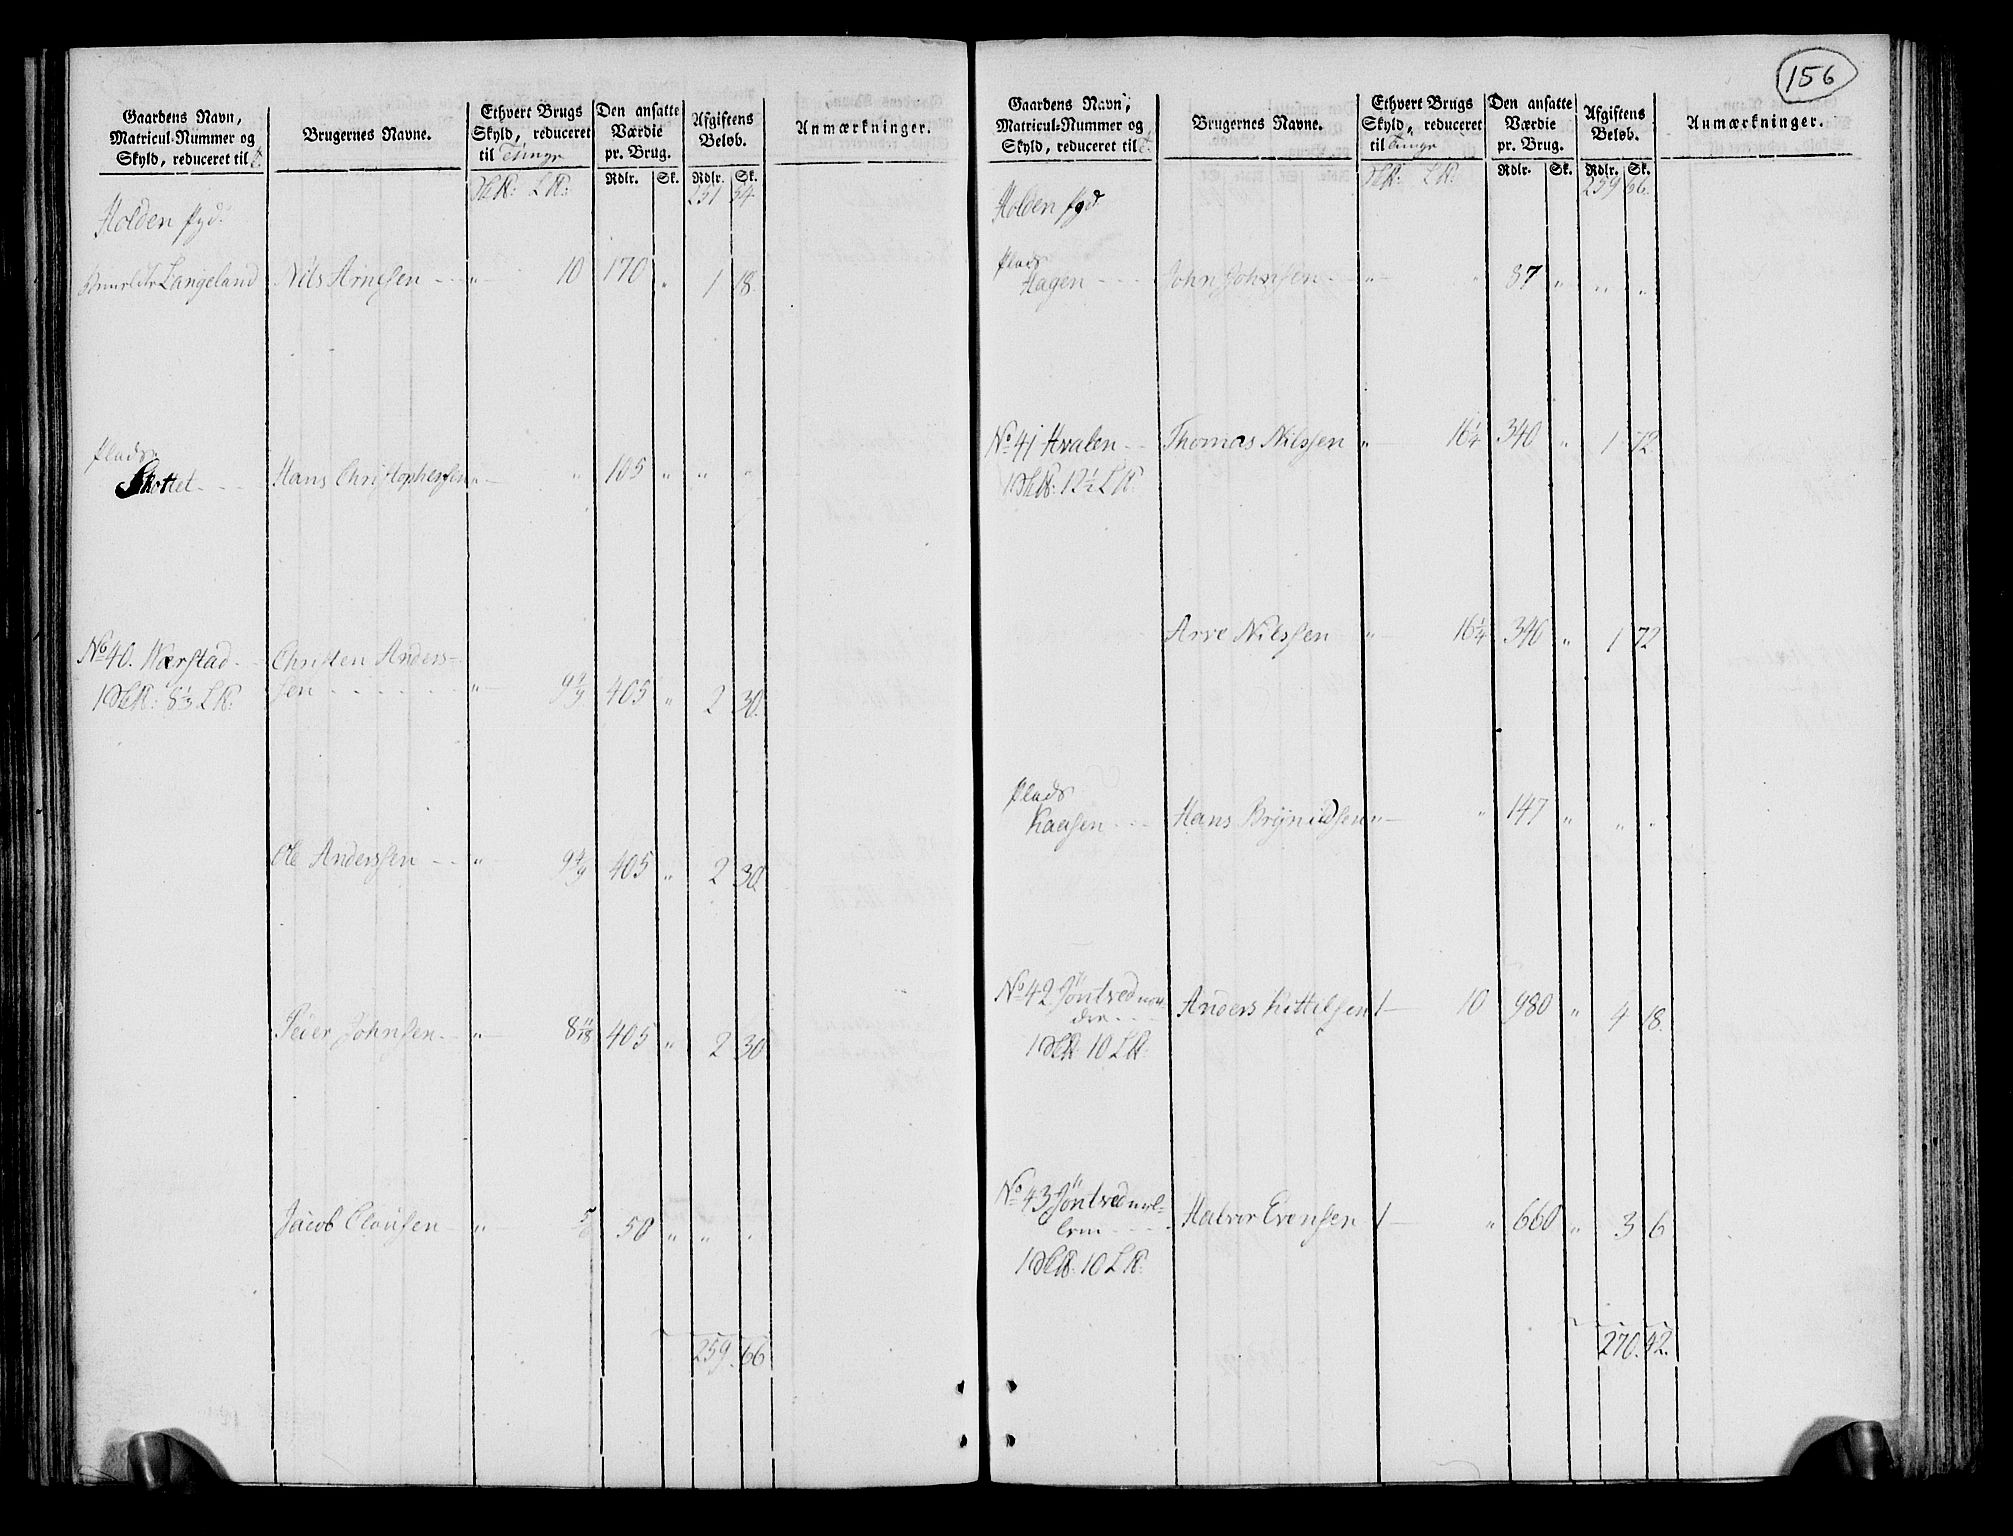 Gaardens Navn,
Matricul-Nummer og
Skyld, reduceret til
Brugernes Navne.
Ethvert Brugs
Skyld, reduceret
til Tünge
Den ansatte
Værdie
pr. Brug.
Afgiftens
Beløb.
Anmærkninger.
Rdlr. Sk. Rdlr. Sk.
251 54
Holden
Langeland Nils Arnesen 10 170 " 1 18.
Plads
Hans Christophersen " " 105 " " "
No 40. Værstad Christen Anders=
sen " 9 4/9 405 " 2 30.
Ole Anderssen " 9 4/9 405 " 2 30.
Peier Johnsen " 8 11/18 405 " 2 30
Jacob Clousen " 50 " " "
259. 66
156
Gaardens Navn,
Matricul-Nummer og
Skyld, reduceret til
Brugernes Navne.
Ethvert Brugs
Skyld, reduceret
til Tünge
Den ansatte
Værdie
pr. Brug.
Afgiftens
Beløb.
Anmærkninger.
Rdlr. Sk. Rdlr. Sk.
259 66.
Holden
Plads
Hagen John Johnsen " " 87 " " "
No 41 Hvalen Thomas Nilssen " 16 1/4 340 " 1 72
Arve Nilssen " 16 1/4 340 " 1 72
Plads
Kaasen Hans Brÿnildsen " " 147 " " "
No 42 Jöntved
Anders Kittilsen 1 10 980 " 4 18.
No 43 Jöntved
Halvor Evensen 1 " 660 " 3 6
270. 42.